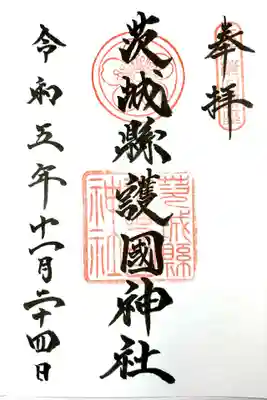 奉拝
茨城縣護國神社
令和五年十一月二十四日
茨城縣
神社